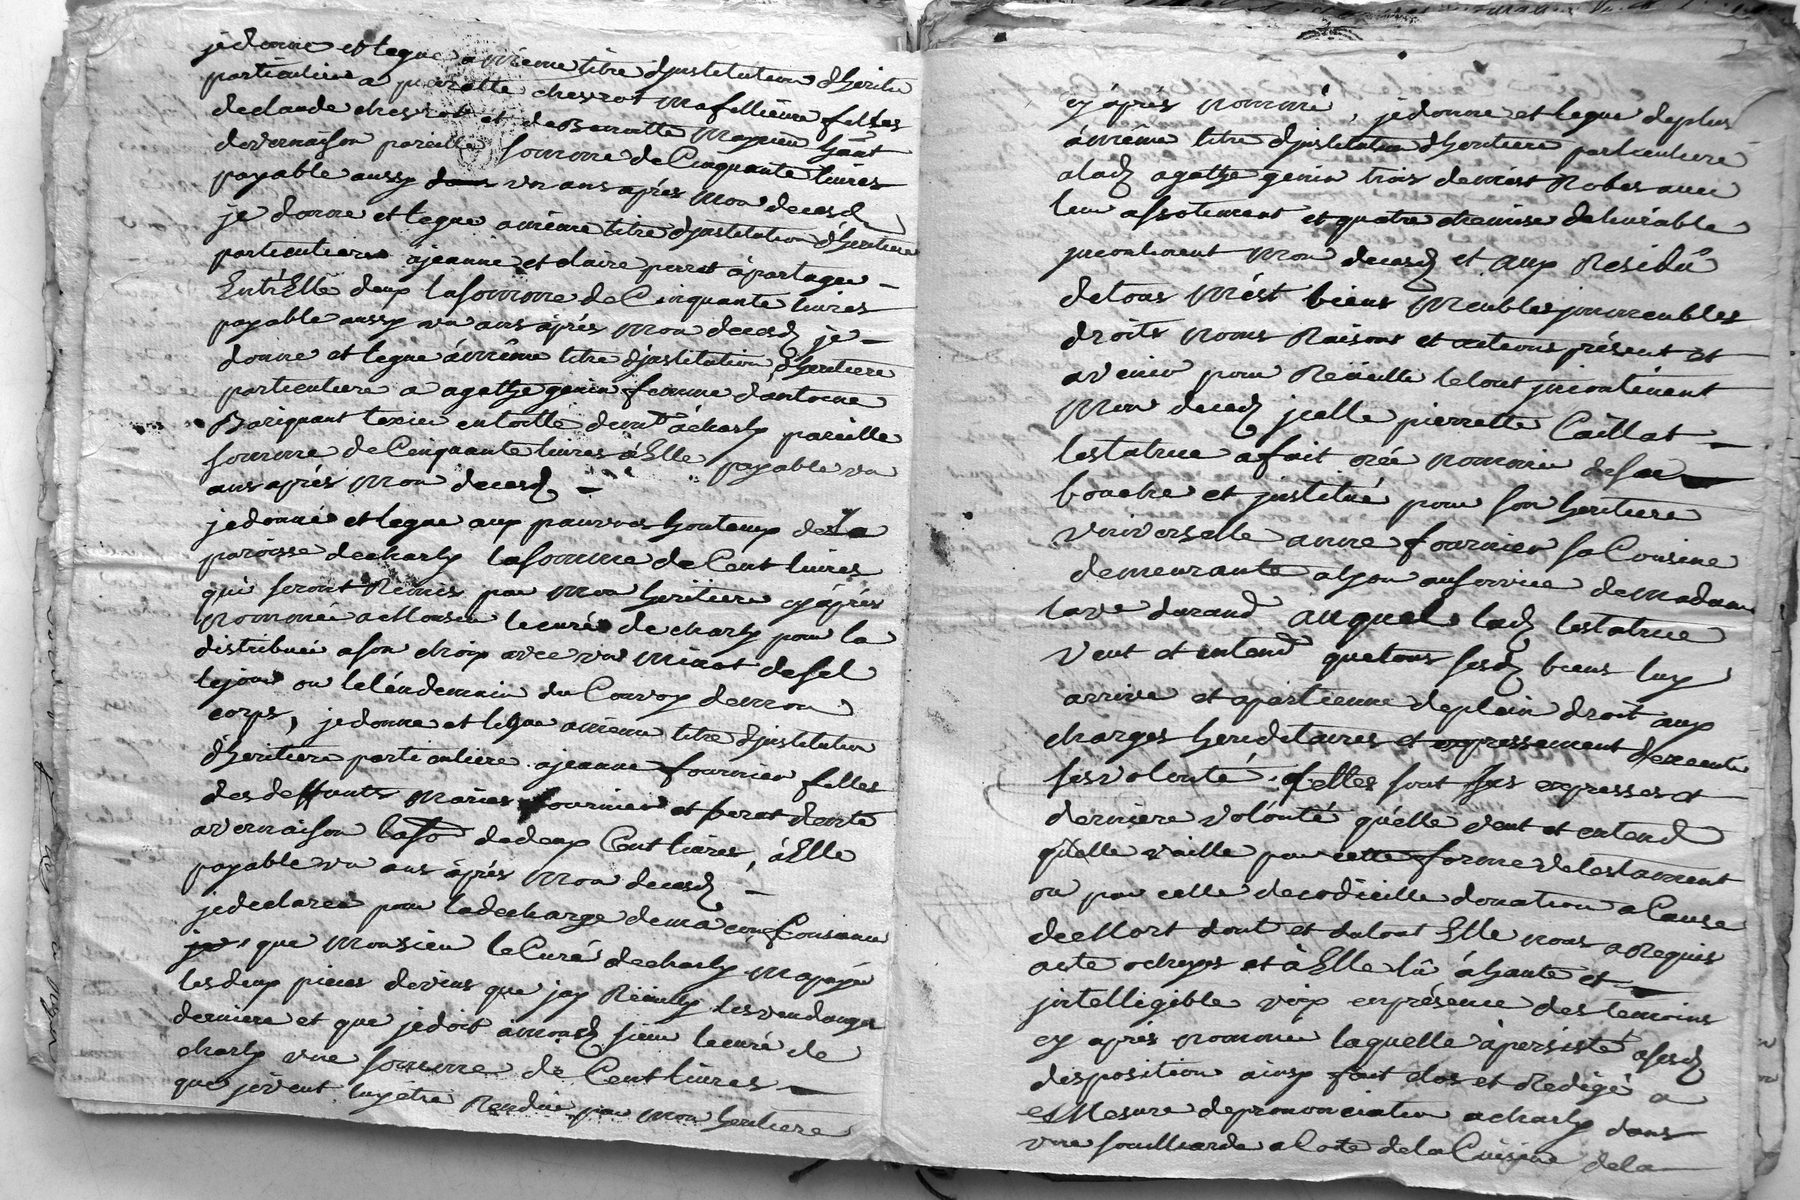 je donne et legue a méme titre d'justitution d'heritie
particuliere a pierrette chesrot ma fillieure filles
de claude chesrot et de Benoitte Mayeu
de vernaison pareille somme de Cinquante livres
payable aussy vn ans aprés mon decesd
je donne et legue a méme titre d'justitution d'heritiere
particuliere a jeanne et claire perrot à partager
Entr'Elle deux la somme de Cinquante livres
payable aussy vn ans àprés mon decesd je
donne et legue á méme titre d'justitution d'heritiere
particuliere a agathe genin femme d'antoine
Bariquant texier en toille demt á charly pareille
somme de Cinquante livres á Elle payable vn
ans aprés mon decesd
je donne et legue aux pauvres honteux de La
paroisse de charly la somme de Cent livres
qui seront Remis par mon heritiere cy áprés
nommée a Monsieu le curé de charly pour la
distribuée a son choix avec vn minot de sel
le jour ou le léndemain du Convoy de mon
corps, je donne et legue a méme titre d'justitution
d'heritiere particuliere a jeanne fournier filles
des deffunts Fournier et perrot
a vernaison de deux Cent livres, á Elle
payable vn ans áprés mon decesd
je declarée pour la decharge de ma Consiance
que Monsieu le Curé de charly m'a payée
les deux pieces de vins que j'ay les vendanges
derniere et que je doit á mond sieur le curé de
charly vne somme de Cent livres
que luy étre Rendue par mon heritiere
cy áprés nommé, je donne et legue de plus
á méme titre d'justitution d'heritiere particuliere
a lad agathe genin trois de mest Robes avec
leur assotiment et quatre chemise delivrable
jncontinent mon decesd et aux Residû
de tous mést biens meubles jmmeubles
droits noms Raisons et actions présent et
avenir pour Reuillir le tout jncontinent
mon decesd jcelle pierrette Caillat
testatrice a fait crée nommée de sa
bouche et justitué pour son heritiere
vniverselle anne fournier sa Cousine
demeurante a lyon au service de madame
la ve durand auquel lad testatrice
veut et entend que tous sesd biens luy
arrive et apartienne de plein droit aux
charges hereditaires et expressement
ses volonté. telles sont ses expresses et
derniere volónté qu'élle veut et entend
quelle vaille par cette forme de testament
ou par celle de codicille donation a Cause
de Mort dont et du tout Elle nous a Requis
acte octroyes et á Elle lû á haute et
jntelligible voix en présence des temoins
cy aprés nommé laquelle à persisté a sesd
disposition ainsy fait clos et Redigé a
Mesure de prononciation a charly dans
vne souilliarde a Coté de la Cuisine de la